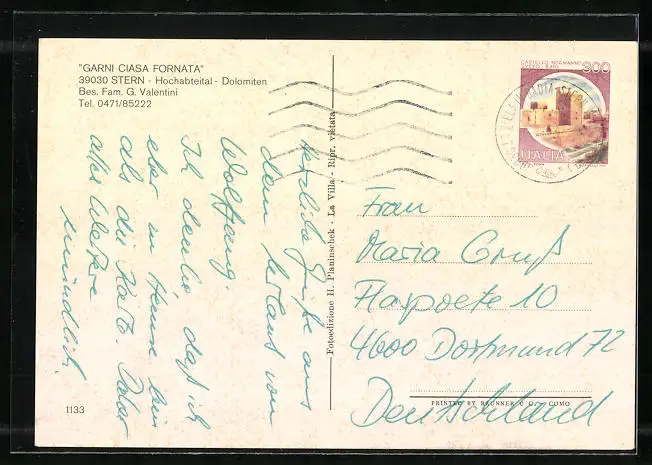 "GARNI CIASA FORNATA"
39030 STERN - Hochabteital - Dolomiten
Bes. Fam. G. Valentini
Tel. 0471/85222
Herzliche Grüße aus
dem Urlaub von
Wolfgang.
Ich denke daß ich
eher zu Hause bin
als die Karte. Daher
alles Weitere
mündlich.
1133
Fotoedizione H. Planinschek - La Villa - Ripr. vietata
CASTELLO NORMANNO
SVEVO - BARI
300
ITALIA
Frau
Maria Gruß
4600 Dortmund 72
Deutschland
PRINTED BY BRUNNER & C. - COMO